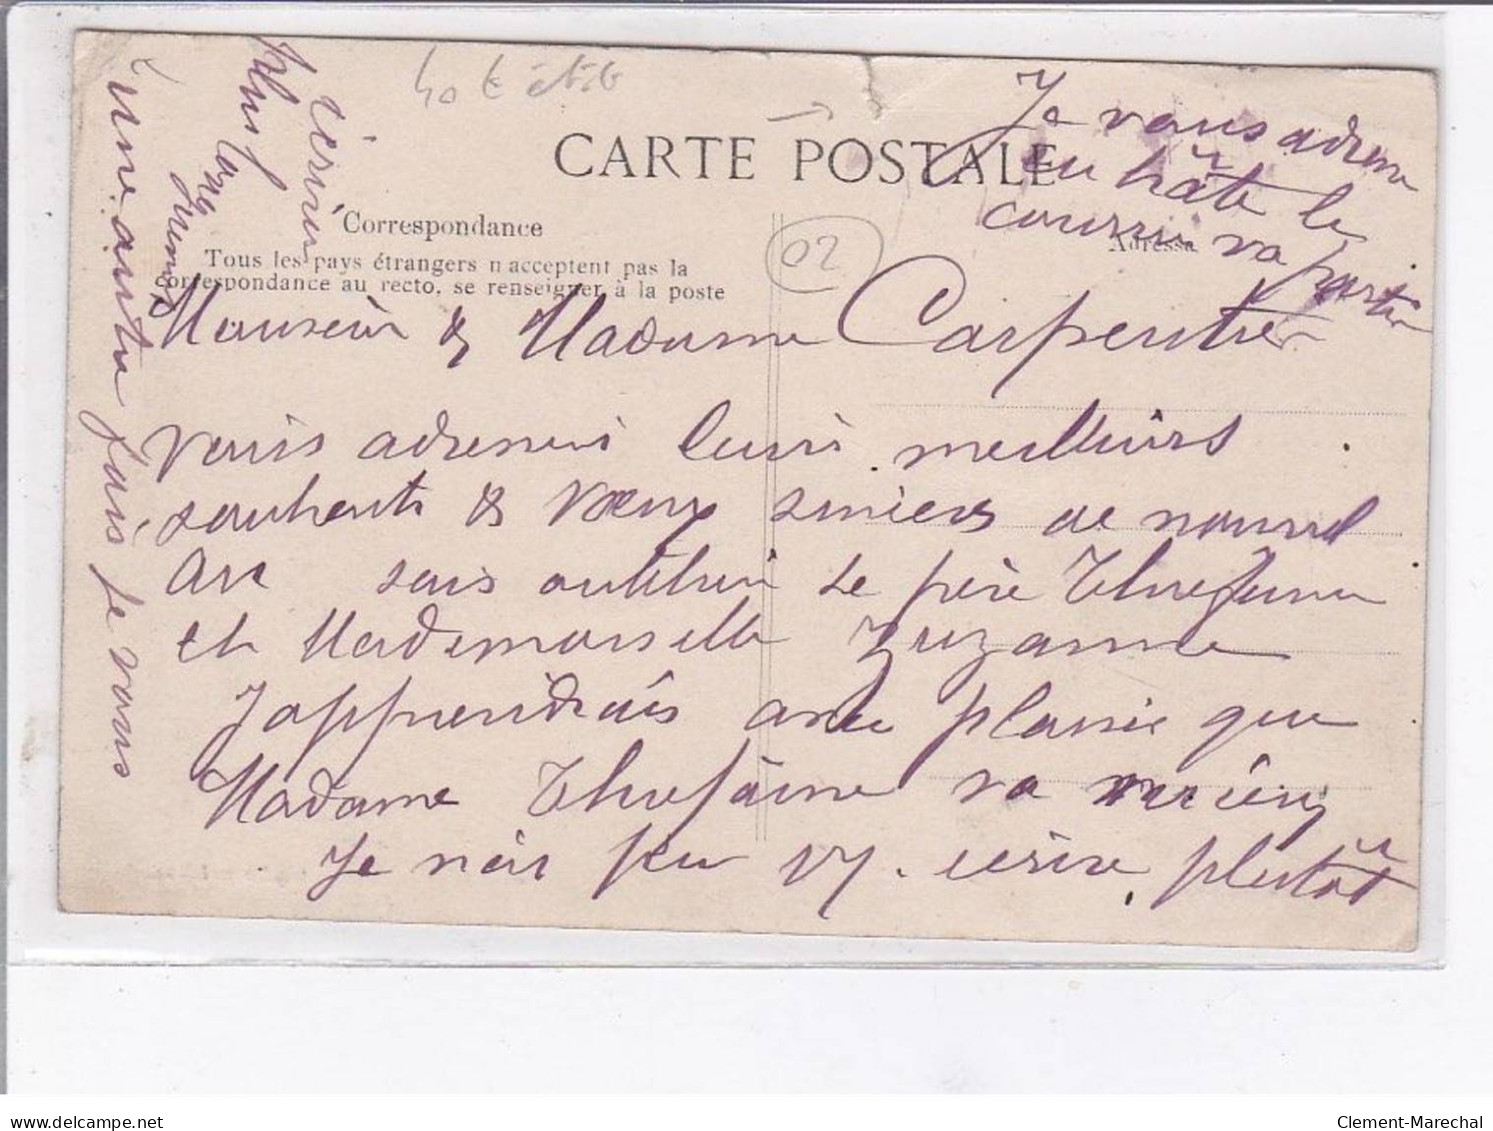 CARTE POSTALE
Correspondance
Tous les pays étrangers n'acceptent pas la
correspondance au recto, se renseigner à la poste
Adresse
02
Monsieur & Madame Carpentier
vous adressent leurs meilleurs
souhaits & vœux sincères de nouvel
An sans oublier le père
et Mademoiselle Suzanne
J'apprendrais avec plaisir que
Madame va mieux
Je n'ai pu vs. écrire plutôt
Je vous adresse
en hâte le
courrier va partir
une autre fois je vous
écrirai
plus longuement
Clement-Marechal
www.delcampe.net